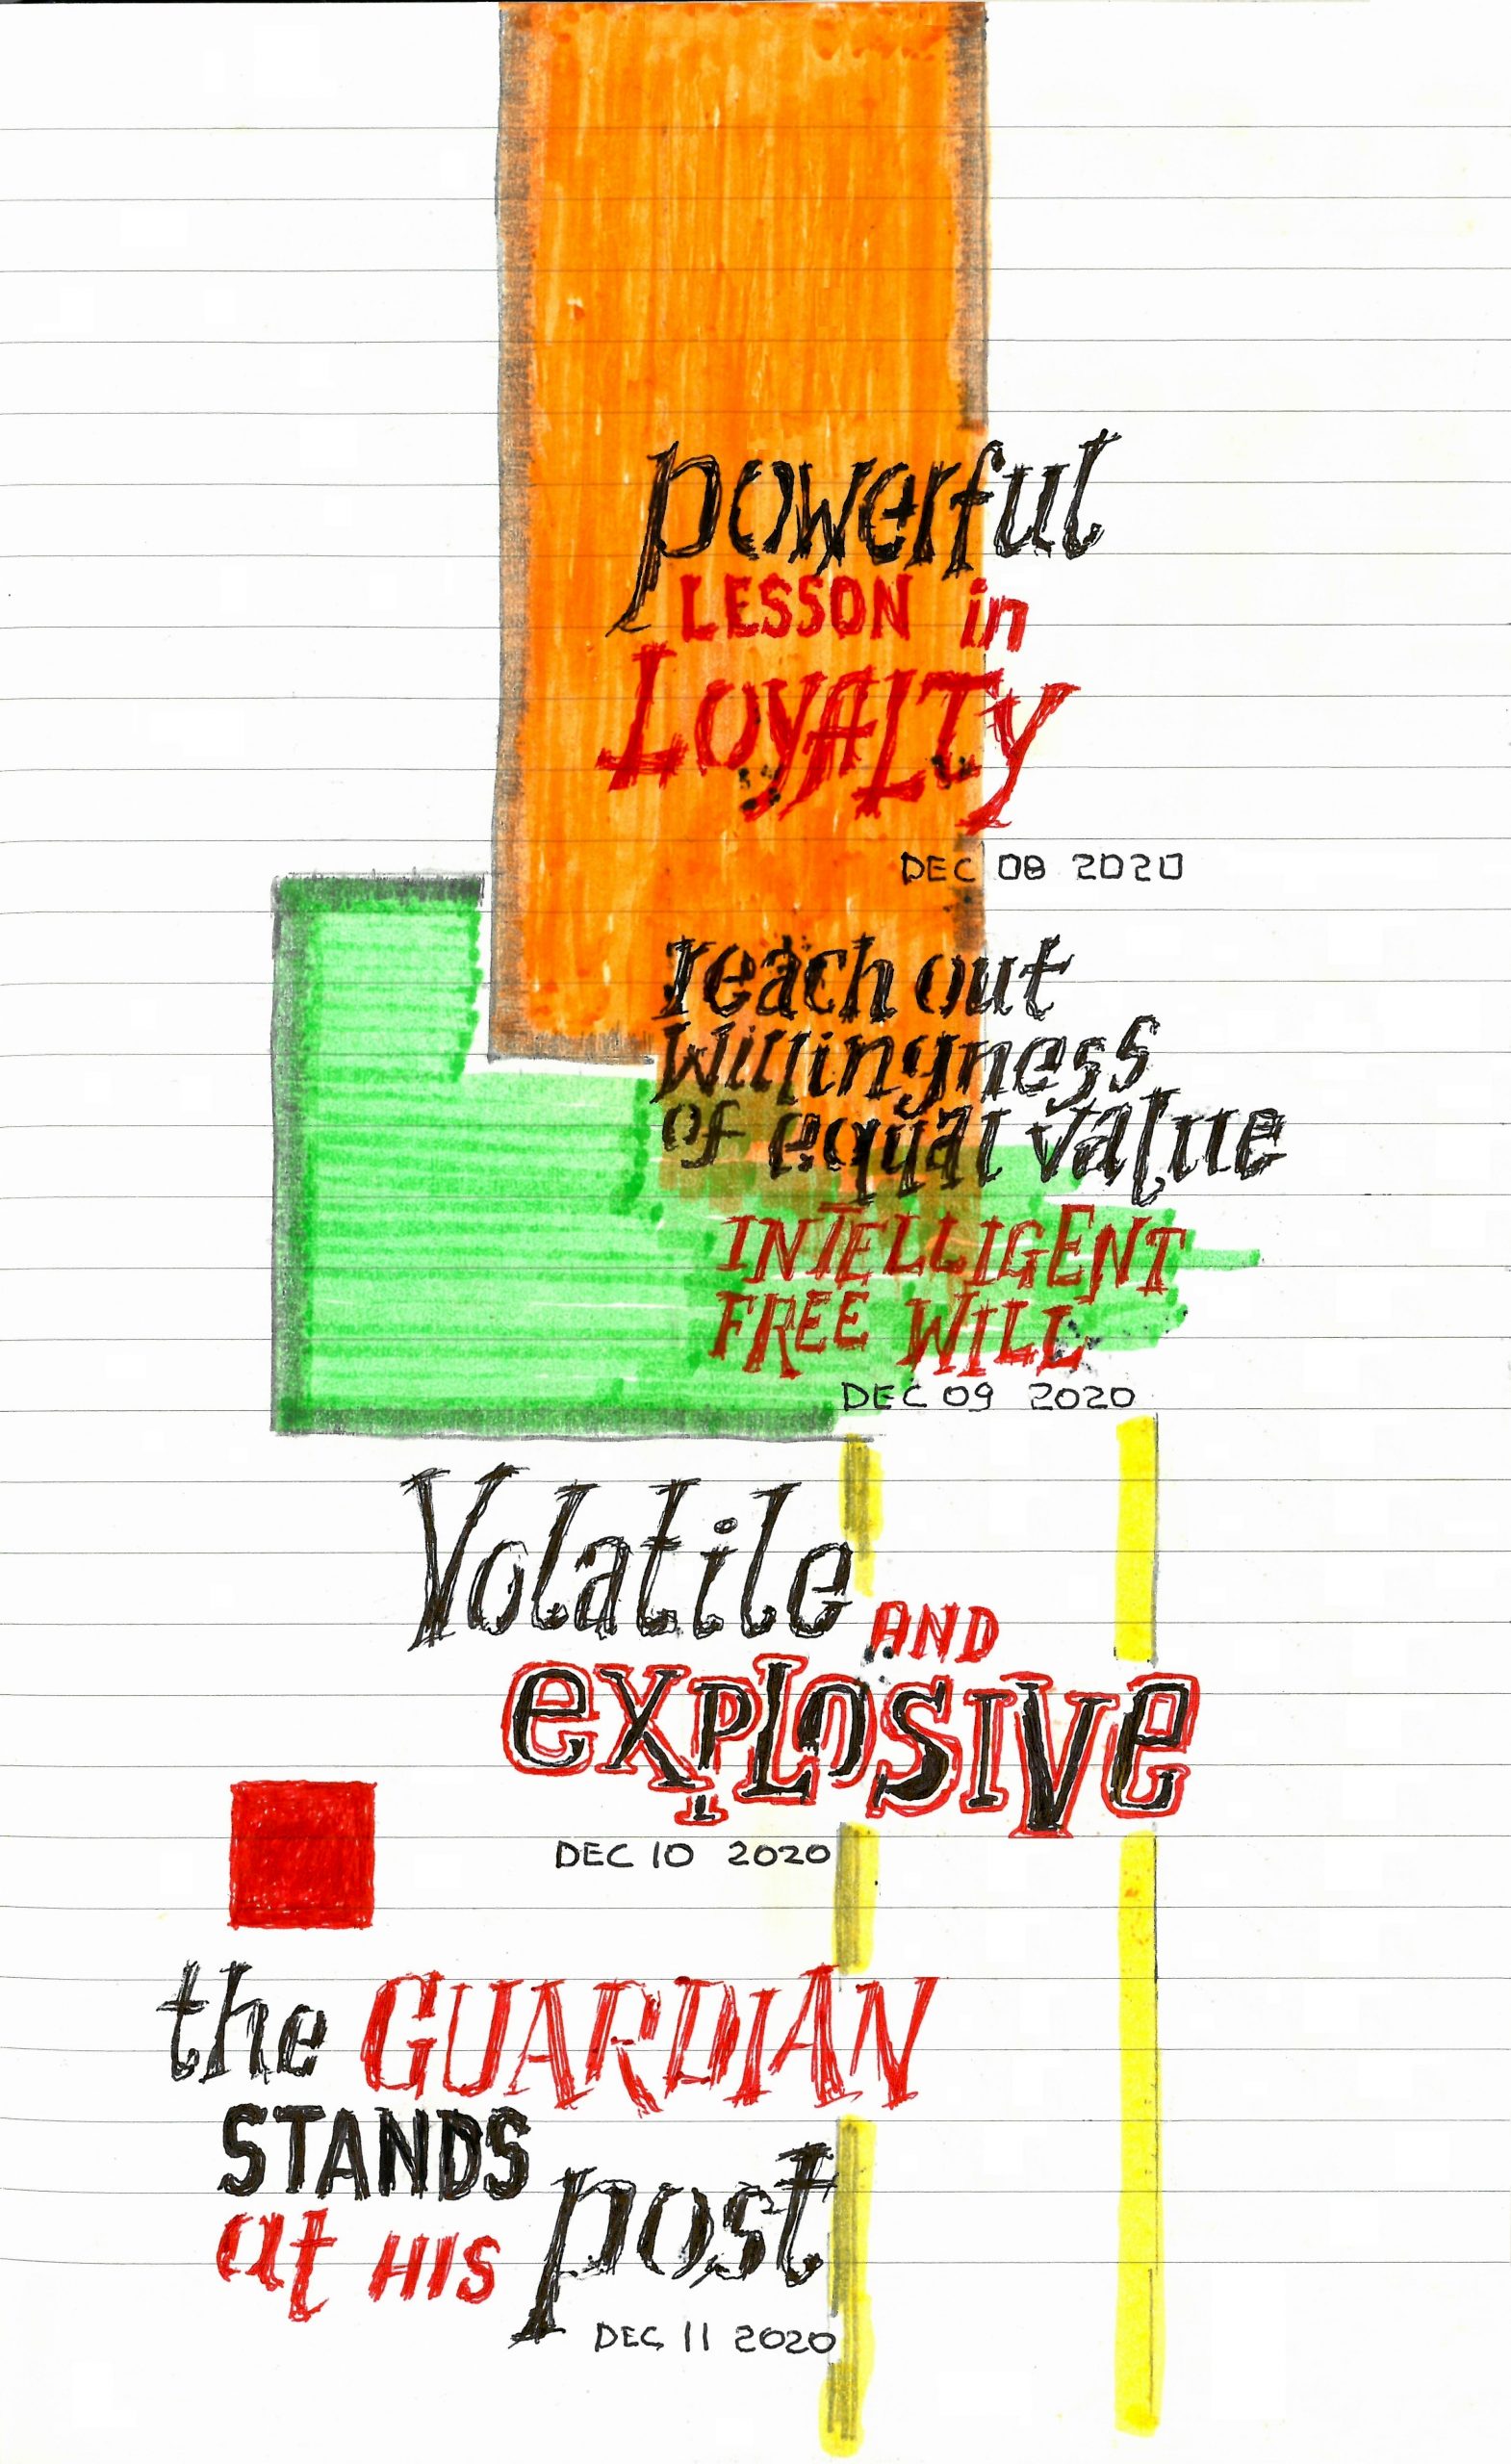 powerful
LESSON in
LOYALTY
DEC 08 2020
reach out
willingness
of equal value
INTELLIGENT
FREE WILL
DEC 09 2020
Volatile AND
eXPLOSIVe
DEC 10 2020
the GUARDIAN
STANDS
at HIS post
DEC 11 2020